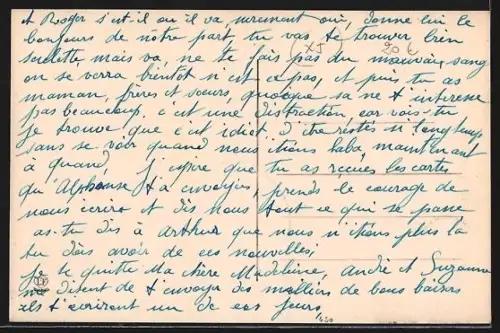 et Roger s'est-il ou il va surement oui, donne lui le
bonjours de notre part, tu vas te trouver bien
seulette, mais va, ne te fais pas du mauvais sang
on se verra bientôt n'est ce pas, et puis tu as
maman, frères et sœurs, quoique sa ne t'interesse
pas beaucoup, c'est une distraction, car vois-tu
je trouve que c'est idiot d'être restés si longtemps
sans se voir quand nous étions laba, maintenant
à quand, j'espère que tu as reçues les cartes
qu'Alphonse t'a envoyées, prends le courage de
nous écrire et dis nous tout ce qui se passe
as-tu dis à Arthur que nous n'étions plus là
tu dois avoir de ces nouvelles,
Je te quitte Ma chère Madeleine, André et Suzanne
me disent de t'envoyer des milliers de bons baisers
ils t'écriront un de ces jours,
XJ
20 €